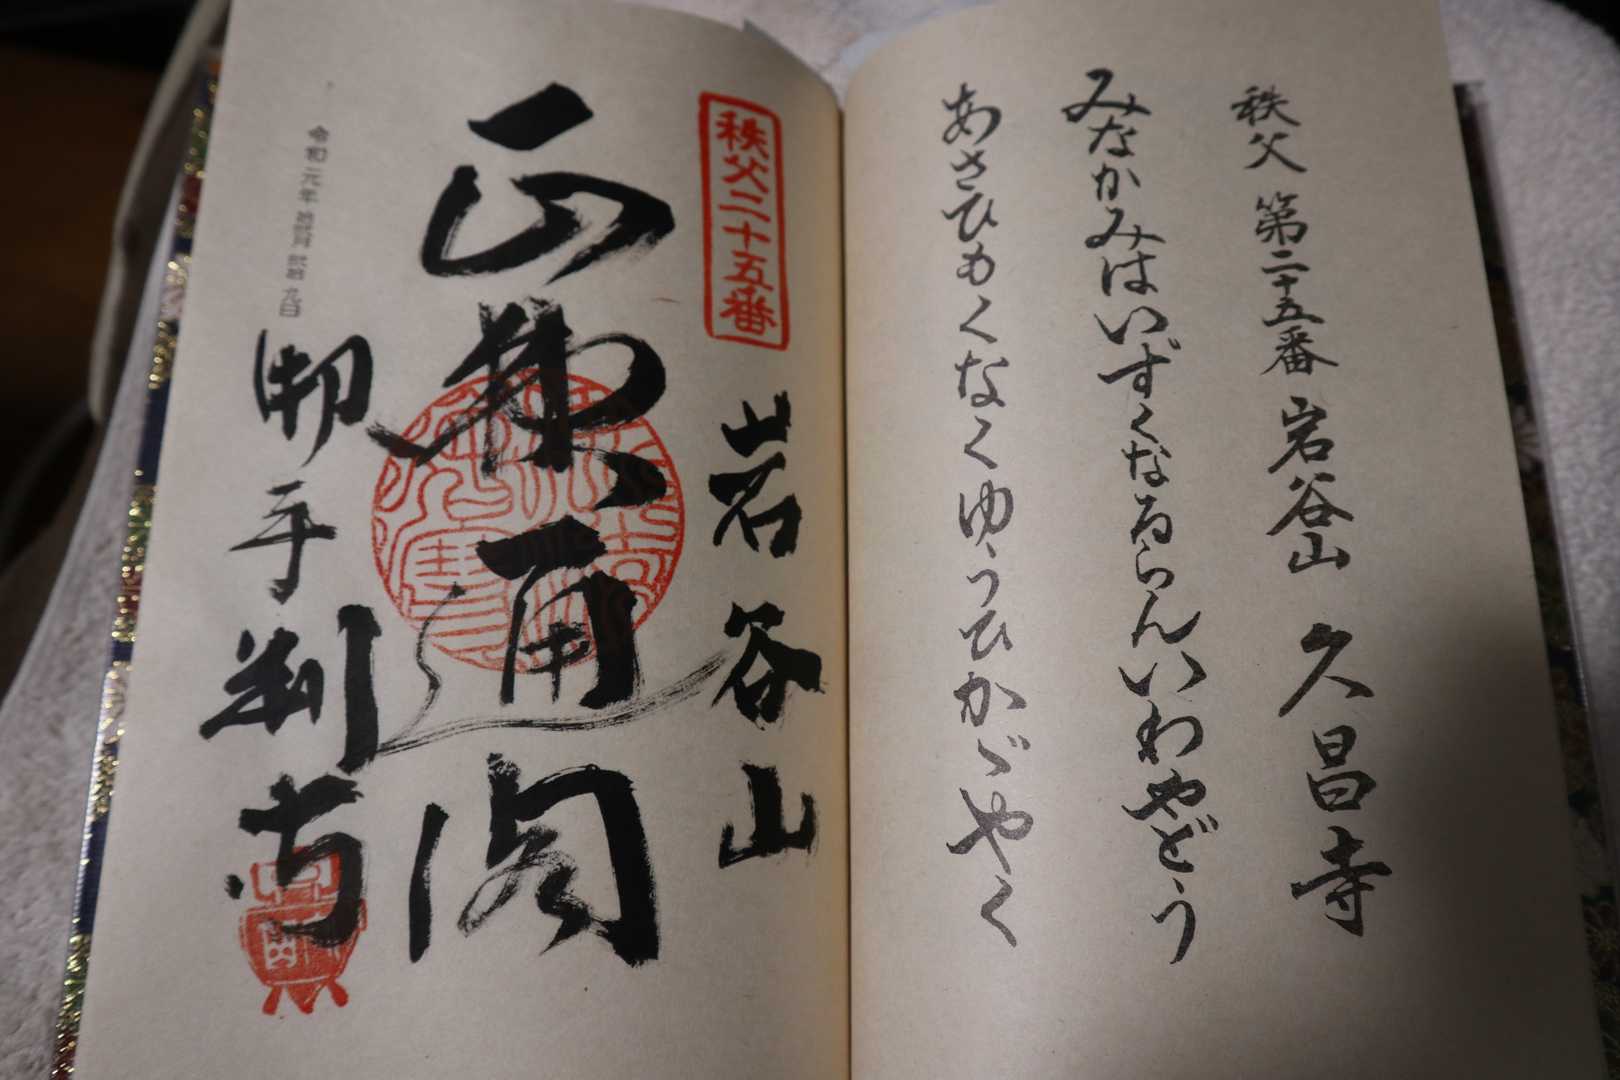 秩父 第二十五番 岩谷山 久昌寺
みなかみはいずくなるらんいわやどう
あさひもくなくゆうひかゞやく
秩父二十五番
岩谷山
正
御手判寺
令和元年 九日